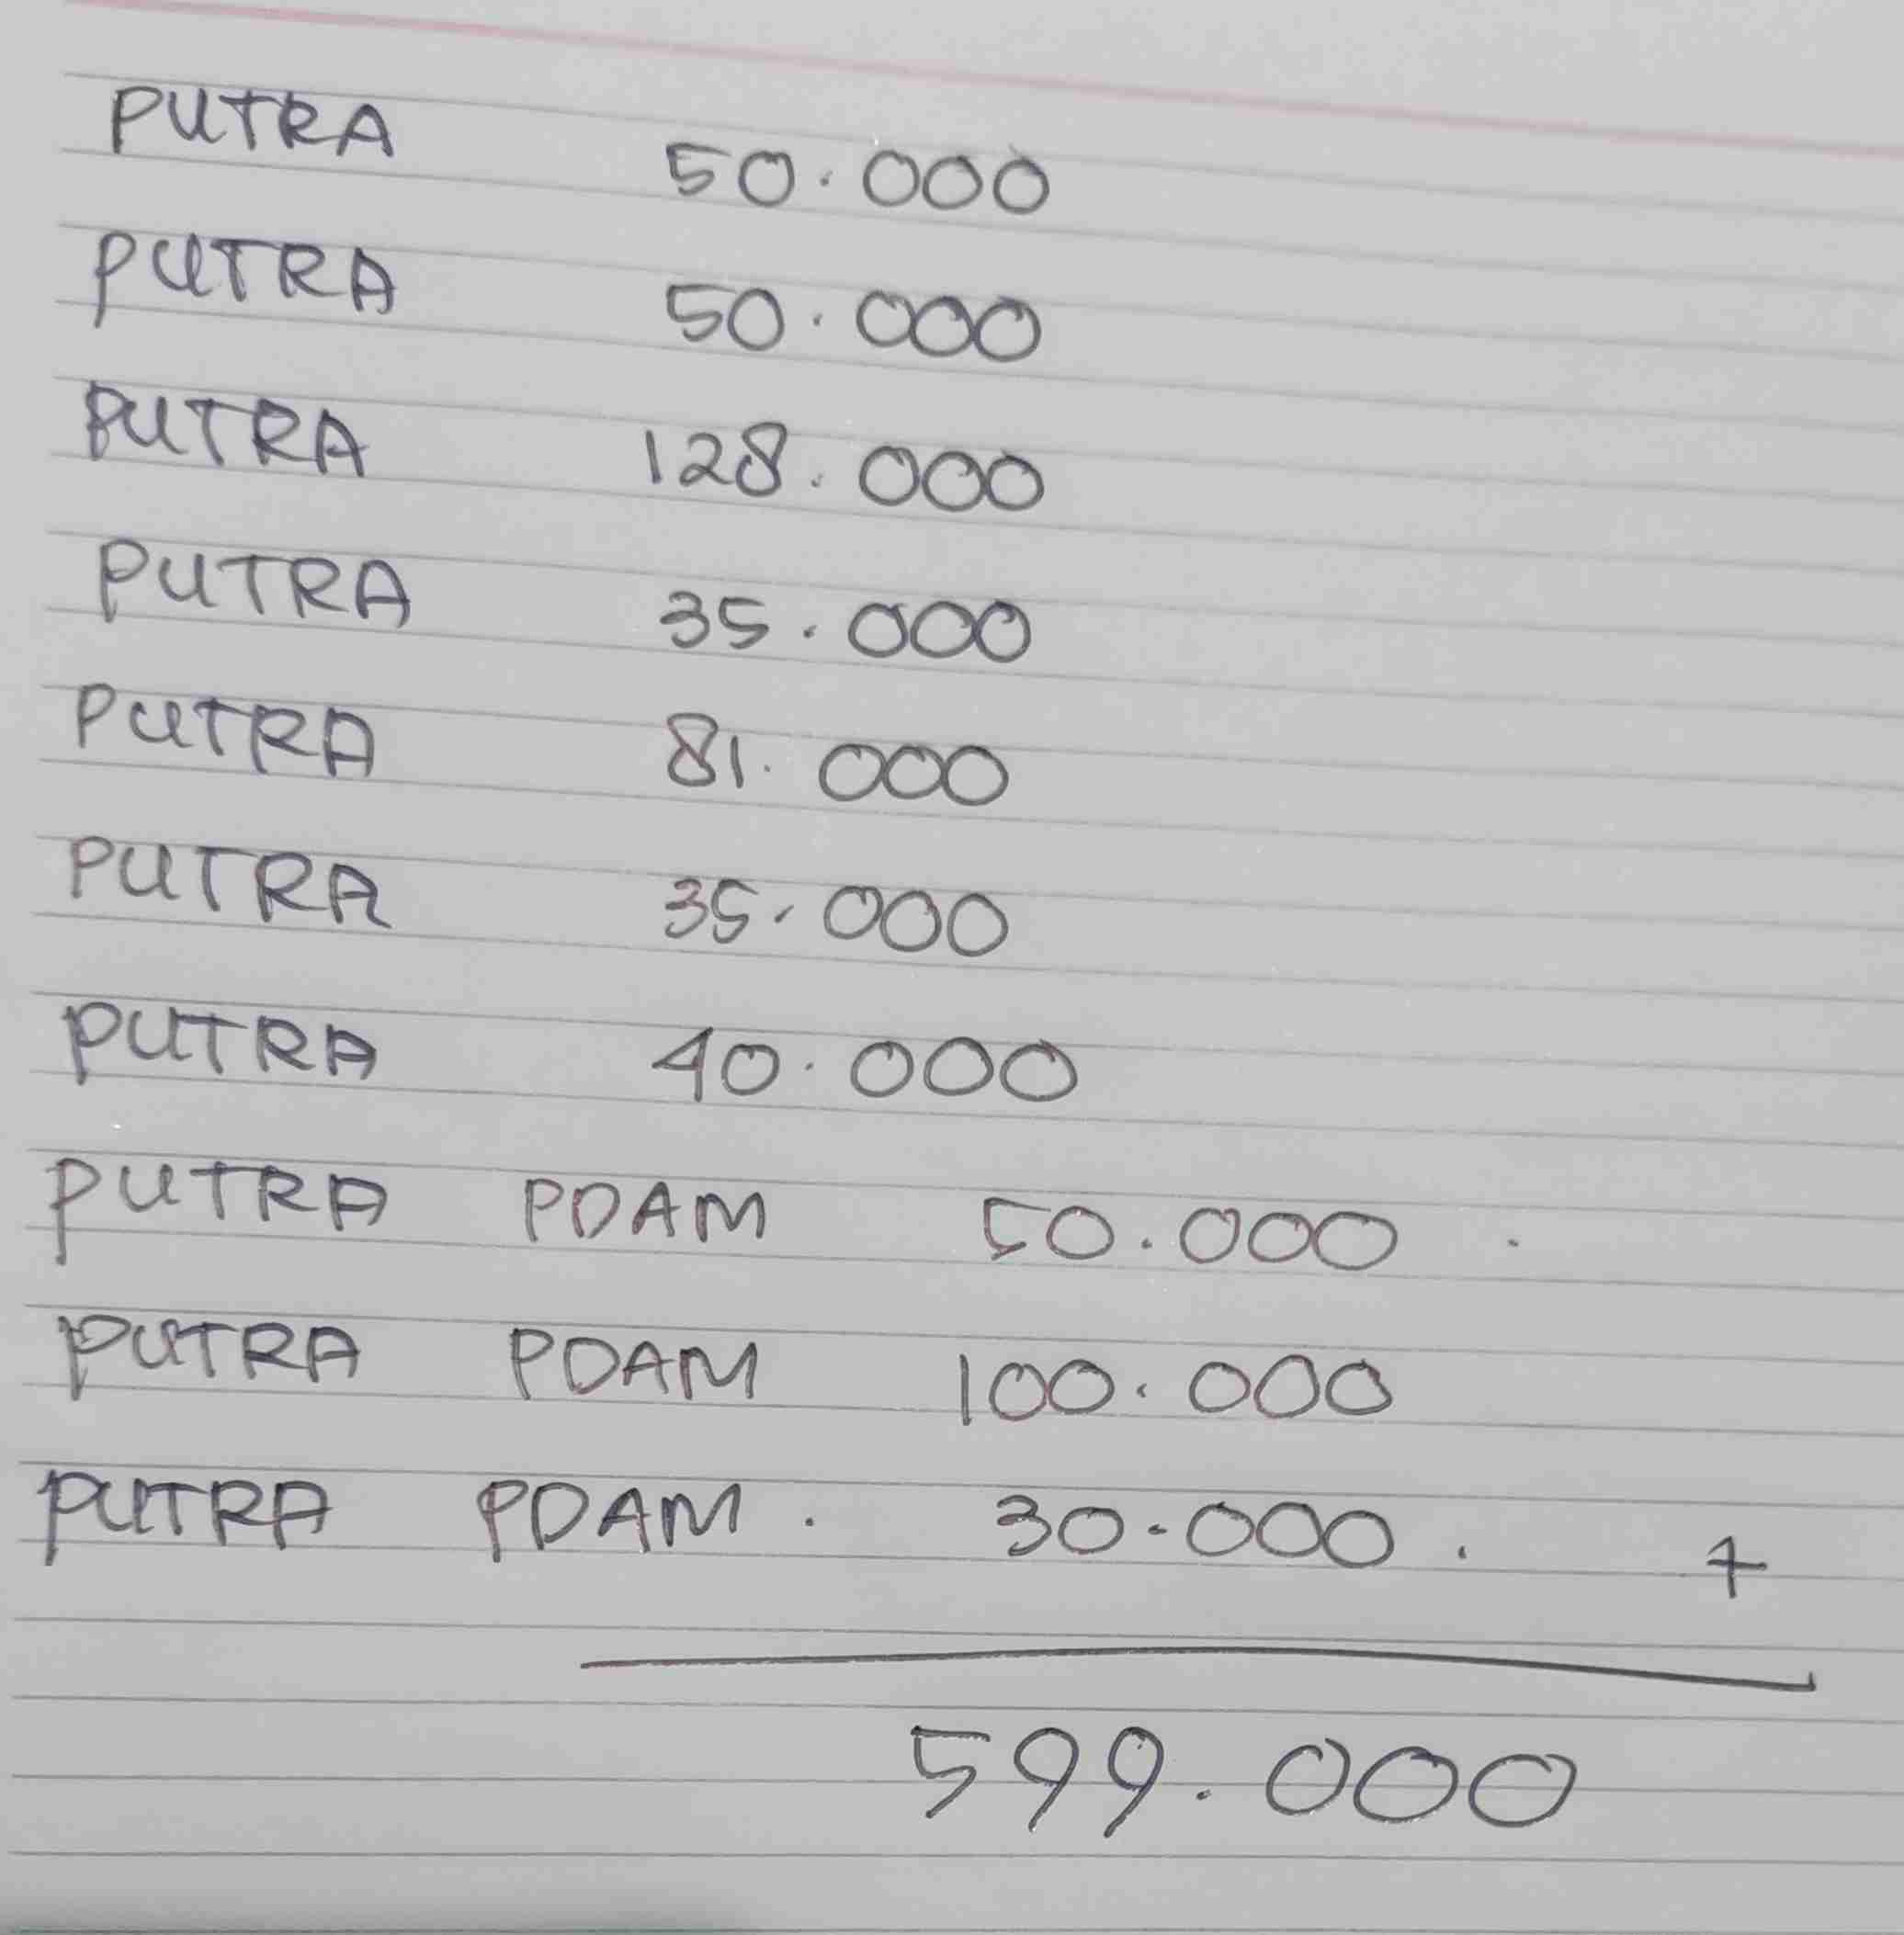 PUTRA 50.000
PUTRA 50.000
PUTRA 128.000
PUTRA 35.000
PUTRA 81.000
PUTRA 35.000
PUTRA 40.000
PUTRA PDAM 50.000 .
PUTRA PDAM 100.000
PUTRA PDAM . 30.000 . +
599.000